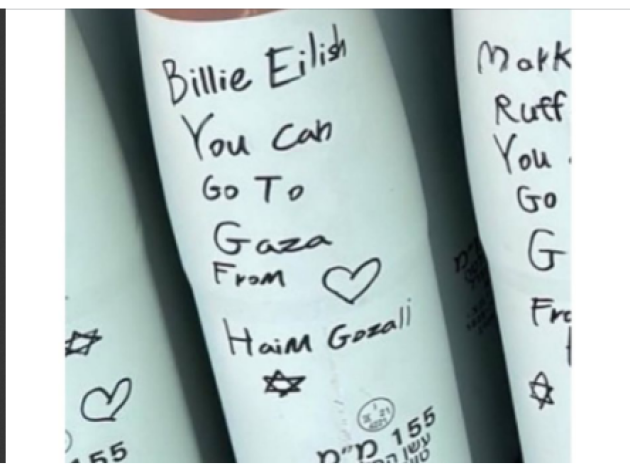 Billie Eilish
You can
Go To
Gaza
From
Haim Gozali
155 מ"מ
עשן
Mark
Ruff
You
Go
G
Fro
155